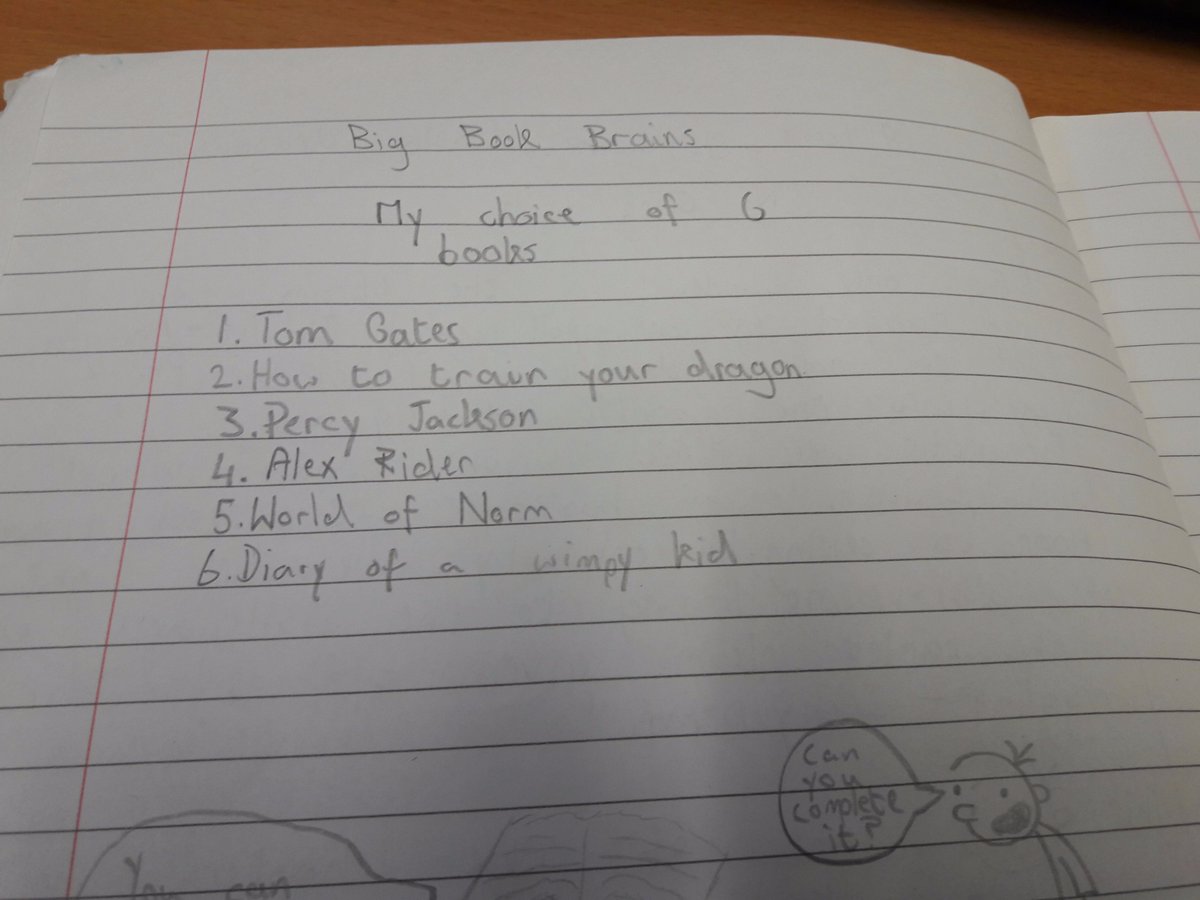 Big Book Brains
My choice of 6
books
1. Tom Gates
2. How to train your dragon
3. Percy Jackson
4. Alex Rider
5. World of Norm
6. Diary of a wimpy kid
can
you
complete
it?
You can